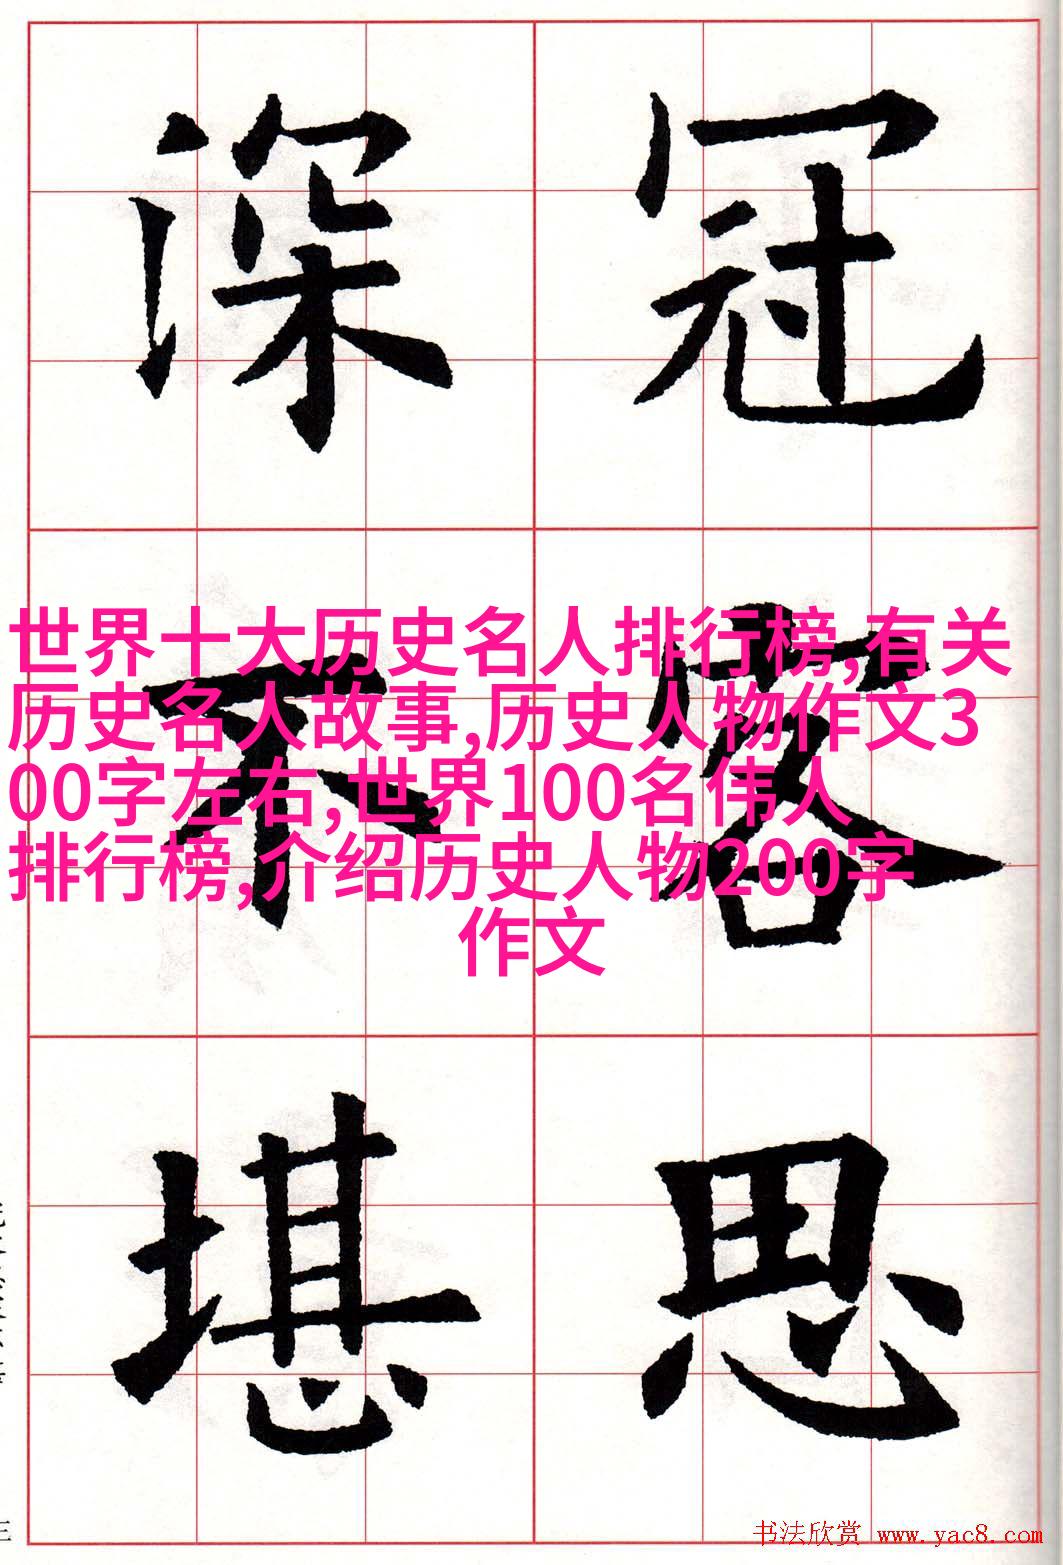 深冠
不容
堪思
世界十大历史名人排行榜,有关
历史名人故事,历史人物作文3
00字左右,世界100名伟人
排行榜,介绍历史人物200字
作文
三
书法欣赏 www.yac8.com